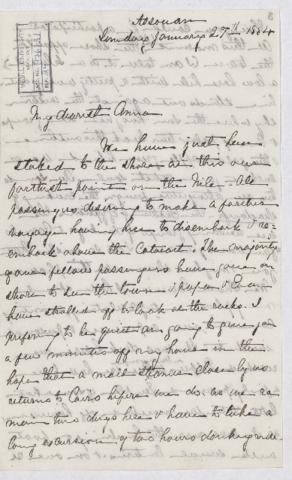 Assouan
Sunday January 27th 1884
My dearest Anna
We have just been
staked to the shore at this our
furthest point on the Nile. All
passengers desiring to make a further
voyage having here to disembark & re-
embark above the Cataract. The majority
of our fellow passengers have gone on
shore to see the town & papa & Eva
have strolled off to look at the rocks. I
preferring to be quiet am going to give you
a few minutes of my hours in the
hope that a mail steamer close by us
returns to Cairo before we do. as we re-
main two days here & have to take a
long excursion of two hours donkey ride